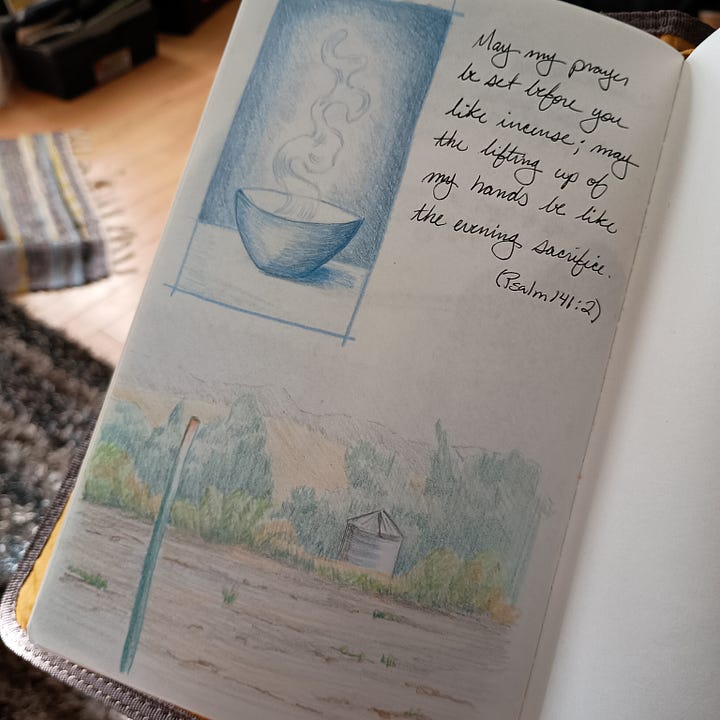 May my prayer
be set before you
like incense; may
the lifting up of
my hands be like
the evening sacrifice.
(Psalm 141:2)